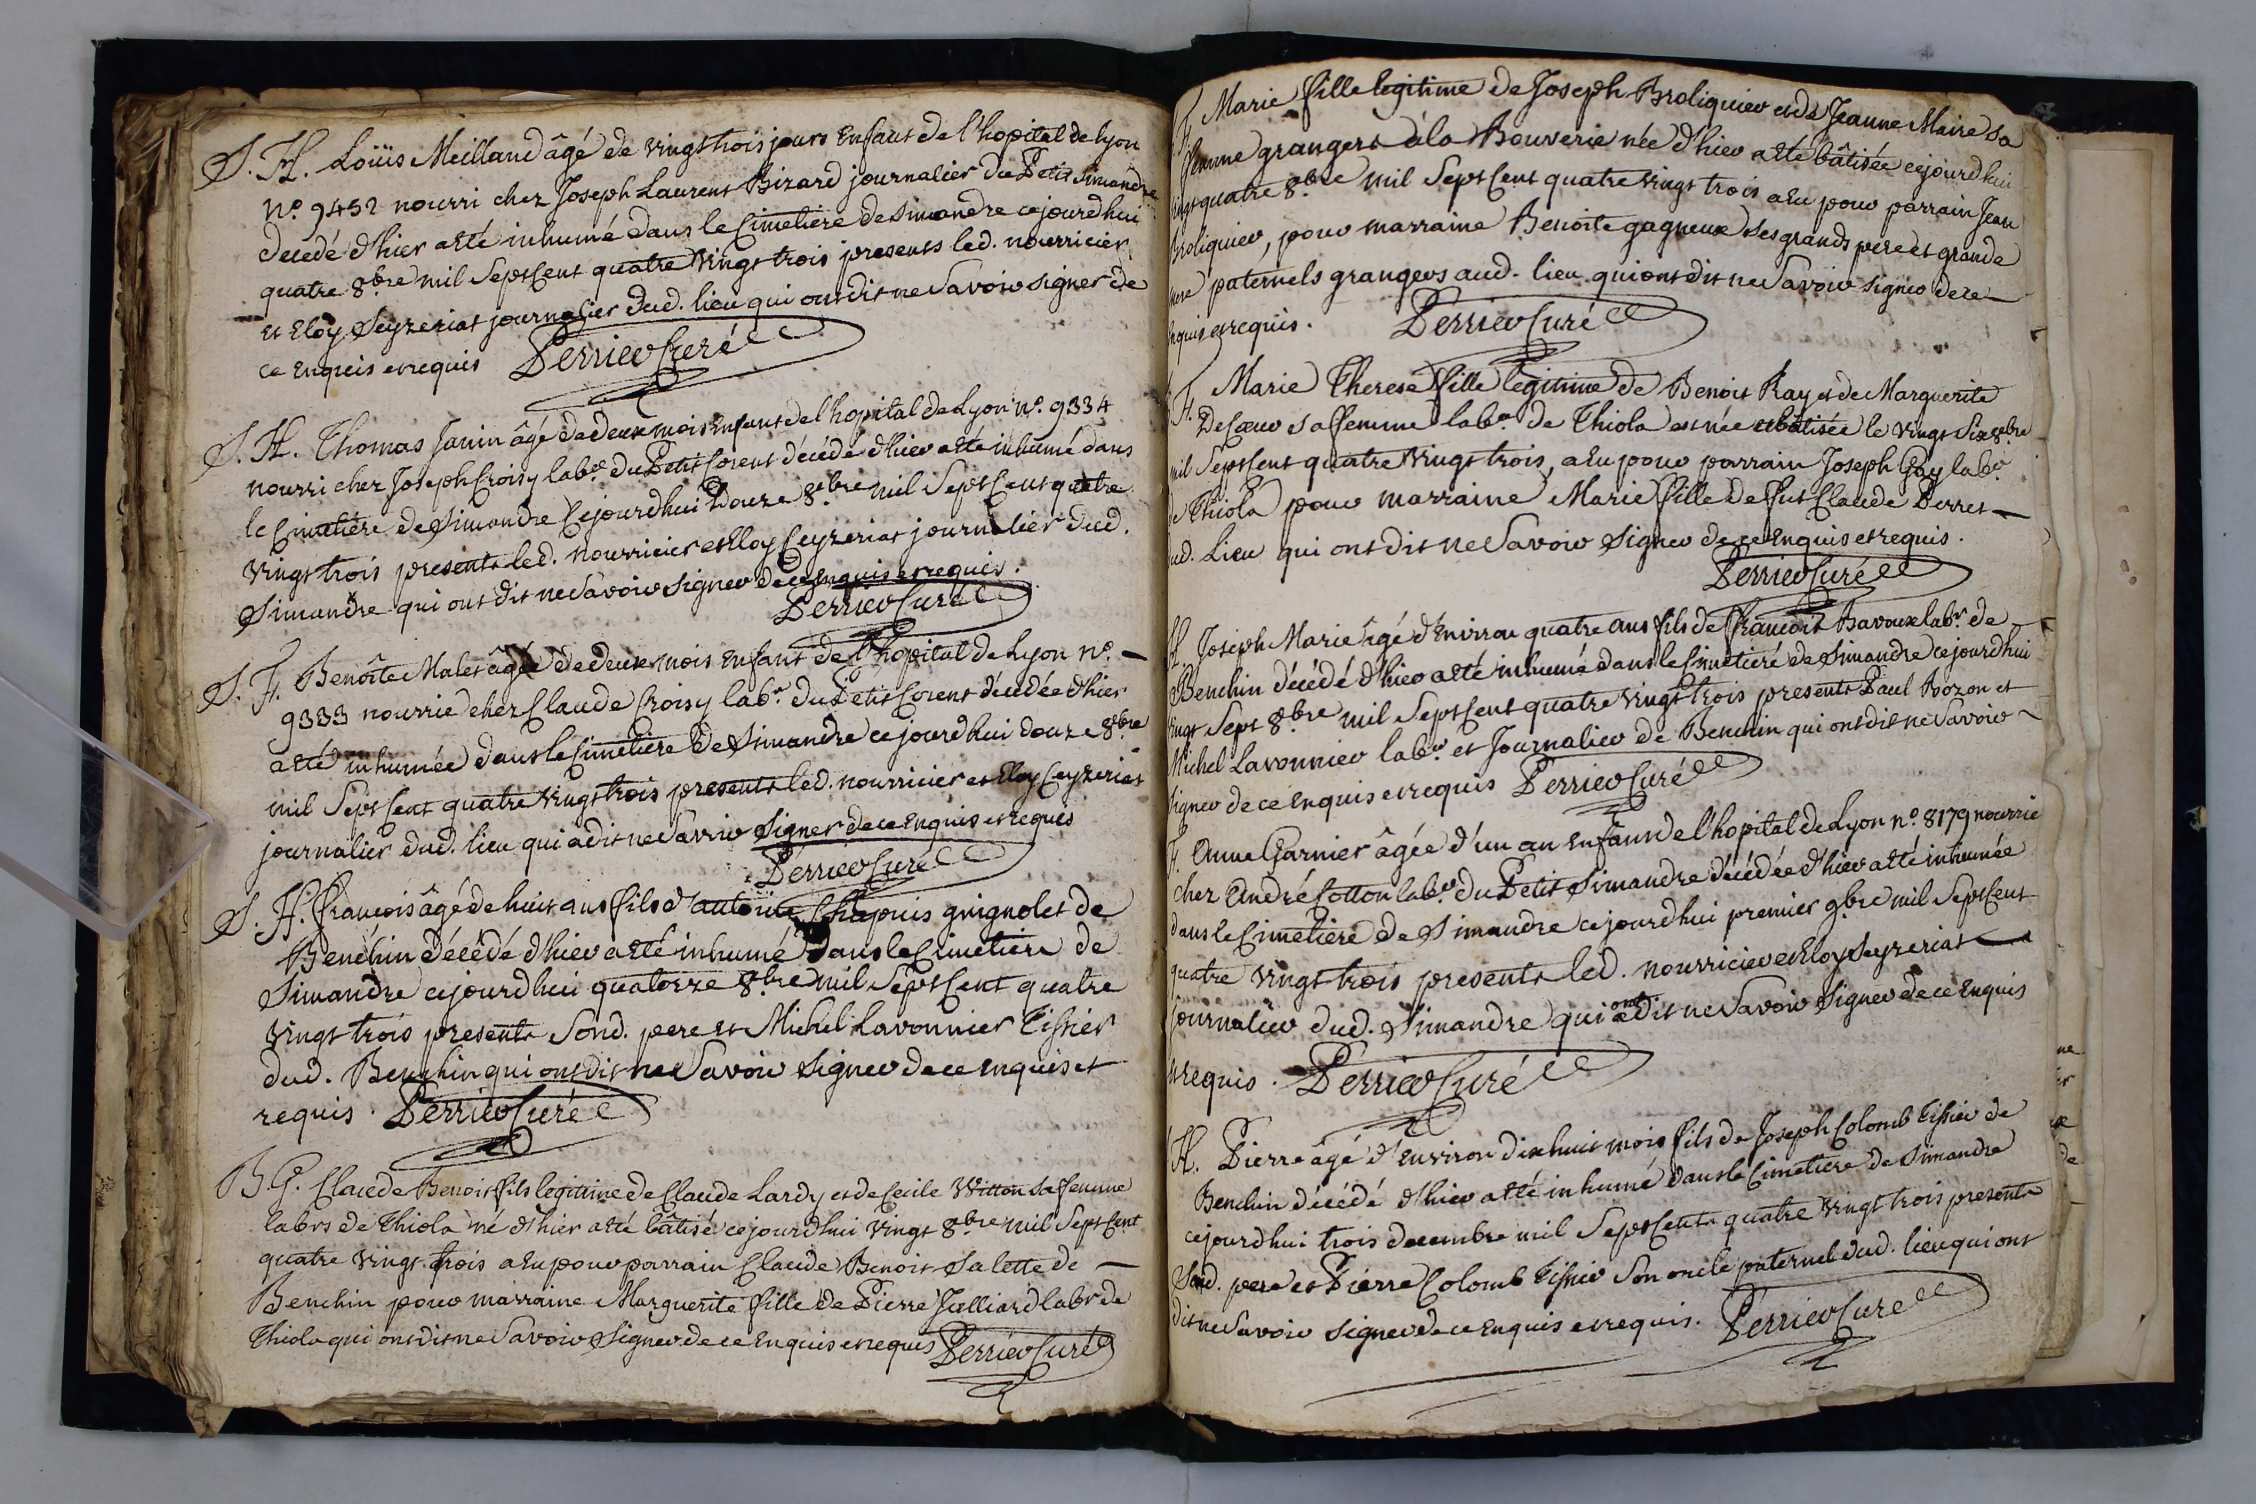 S. H. Loüis Meilland âgé de vingt trois jours Enfant de l'hopital de Lyon
N.° 9452 nourri chez Joseph Laurent Bizard journalier du Petit Simandre
decedé d'hier a eté inhumé dans le Cimetiere de Simandre cejourdhui
quatre 8.bre mil Sept Cent quatre vingt trois presents led. nourricier
et Eloy Seyzeriat journalier dud. lieu qui ont dit ne Savoir signer de
ce Enquis et requis Perrier Curé
S. H. Thomas Janin âgé de deux mois Enfant de l'hopital de Lyon N.° 9334
nourri chez Joseph Croisy labr. du Petit Corent décédé d'hier a eté inhumé dans
le Cimetiére de Simandre Cejourdhui Douze 8.bre mil Sept Cent quatre
vingt trois presents led. nourricier et Eloy Ceyzeriat journalier dud.
Simandre qui ont dit ne Savoir signer de ce Enquis et requis.
Perrier Curé
S. F. Benoîte Malet âgée de deux mois Enfant de l'hopital de Lyon N.°
9333 nourrie chez Claude Croisy labr. du Petit Corent décédée d'hier
a eté inhumée dans le Cimetiere de Simandre cejourdhui douze 8bre
mil Sept Cent quatre vingt trois presents led. nourricier et Eloy Ceyzeriat
journalier dud. lieu qui a dit ne Savoir signer de ce Enquis et requis
Perrier Curé
S. H. François âgé de huit ans fils d'antoine Chapuis guignolet de
Benchin décédé d'hier a eté inhumé Dans le Cimetiere de
Simandre cejourdhui quatorze 8.bre mil Sept Cent quatre
vingt trois presents Sond. pere et Michel Lavonnier Tissier
dud. Benchin qui ont dit ne Savoir signer de ce Enquis et
requis. Perrier Curé
B. G. Claude Benoit fils legitime de Claude Lardy et de Cecile Vitton sa femme
labrs de Thiola né d'hier a eté bâtisé cejourdhui vingt 8bre mil Sept Cent
quatre vingt trois a eu pour parrain Claude Benoit Salette de
Benchin pour marraine Marguerite fille de Pierre Julliard labr de
Thiola qui ont dit ne Savoir signer de ce Enquis et requis Perrier Curé
F. Marie fille legitime de Joseph Broliquier et de Jeanne Maire sa
femme grangers à la Bouverie née d'hier a eté bâtisée cejourdhui
vingt quatre 8.bre mil Sept Cent quatre vingt trois a eu pour parrain Jean
Broliquier, pour marraine Benoite gagneux Ses grands pere et grande
mere paternels grangers aud. lieu qui ont dit ne Savoir signer de ce
Enquis et requis. Perrier Curé
F. Marie Therese fille legitime de Benoit Ray et de Marguerite
Decœur sa femme labrs. de Thiola est née et bâtisée le vingt six 8bre
mil Sept Cent quatre vingt trois, a eu pour parrain Joseph Gay labr.
de Thiola pour marraine Marie fille de fut Claude Perret
dud. Lieu qui ont dit ne Savoir signer de ce Enquis et requis.
Perrier Curé
H Joseph Marie âgé d'Environ quatre ans fils de françois Bavoux labr. de
Benchin décédé d'hier a eté inhumé dans le Cimetiére de Simandre cejourdhui
vingt Sept 8.bre mil Sept Cent quatre vingt trois presents Paul Bozon et
Michel Lavonnier labr. et Journalier de Benchin qui ont dit ne Savoir
signer de ce Enquis et requis Perrier Curé
F. Anne Garnier âgée d'un an Enfant de l'hopital de Lyon n.° 8179 nourrie
chez André Cotton labr. du Petit Simandre décédée d'hier a eté inhumée
dans le Cimetiére de Simandre cejourdhui premier 9.bre mil Sept Cent
quatre vingt trois presents led. nourricier et Eloy Seyzeriat
journalier dud. Simandre qui ont dit ne Savoir signer de ce Enquis
et requis. Perrier Curé
H. Pierre âgé d'Environ dix huit mois fils de Joseph Colomb Tissier de
Benchin décédé d'hier a eté inhumé dans le Cimetiere de Simandre
cejourdhui trois decembre mil Sept Cent quatre vingt trois presents
Sond. pere et Pierre Colomb Tissier Son oncle paternel dud. lieu qui ont
dit ne Savoir signer de ce Enquis et requis. Perrier Curé